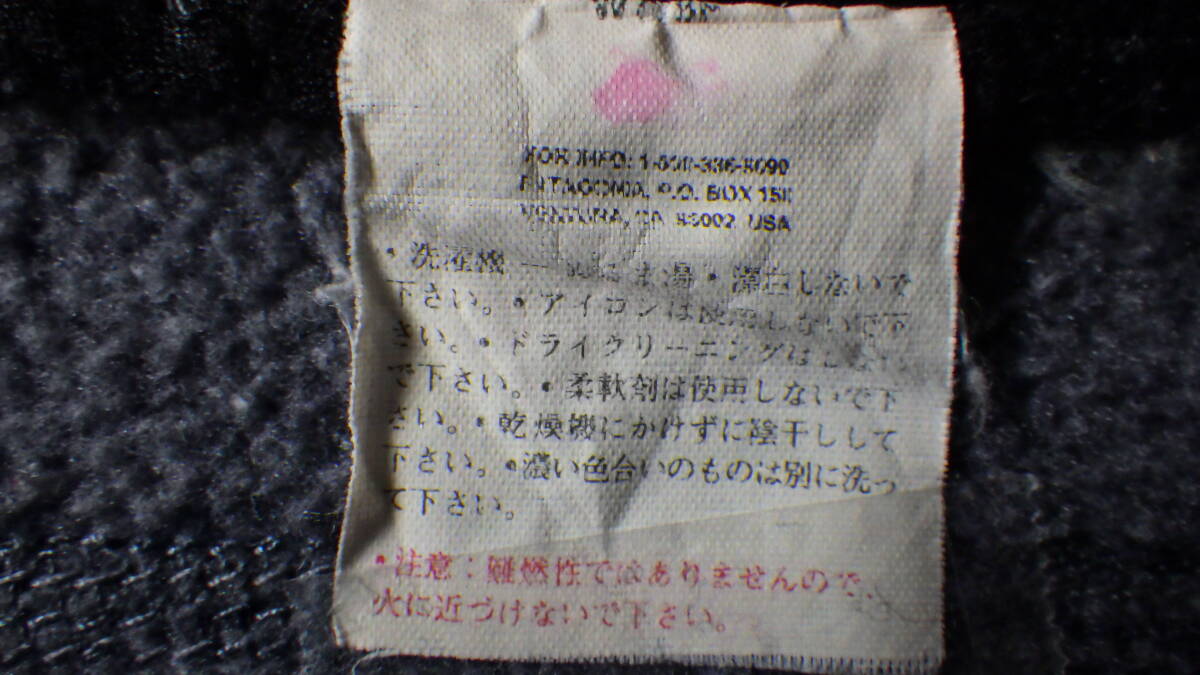 FOR INFO: 1-800-336-9090
PATAGONIA, P.O. BOX 150
VENTURA, CA 93002 USA
・洗濯機 ー 湯・漂白しないで
下さい。・アイロンは使用しないで下
さい。・ドライクリーニングはしない
で下さい。・柔軟剤は使用しないで下
さい。・乾燥機にかけずに陰干しして
下さい。・濃い色合いのものは別に洗っ
て下さい。
・注意：難燃性ではありませんので、
火に近づけないで下さい。